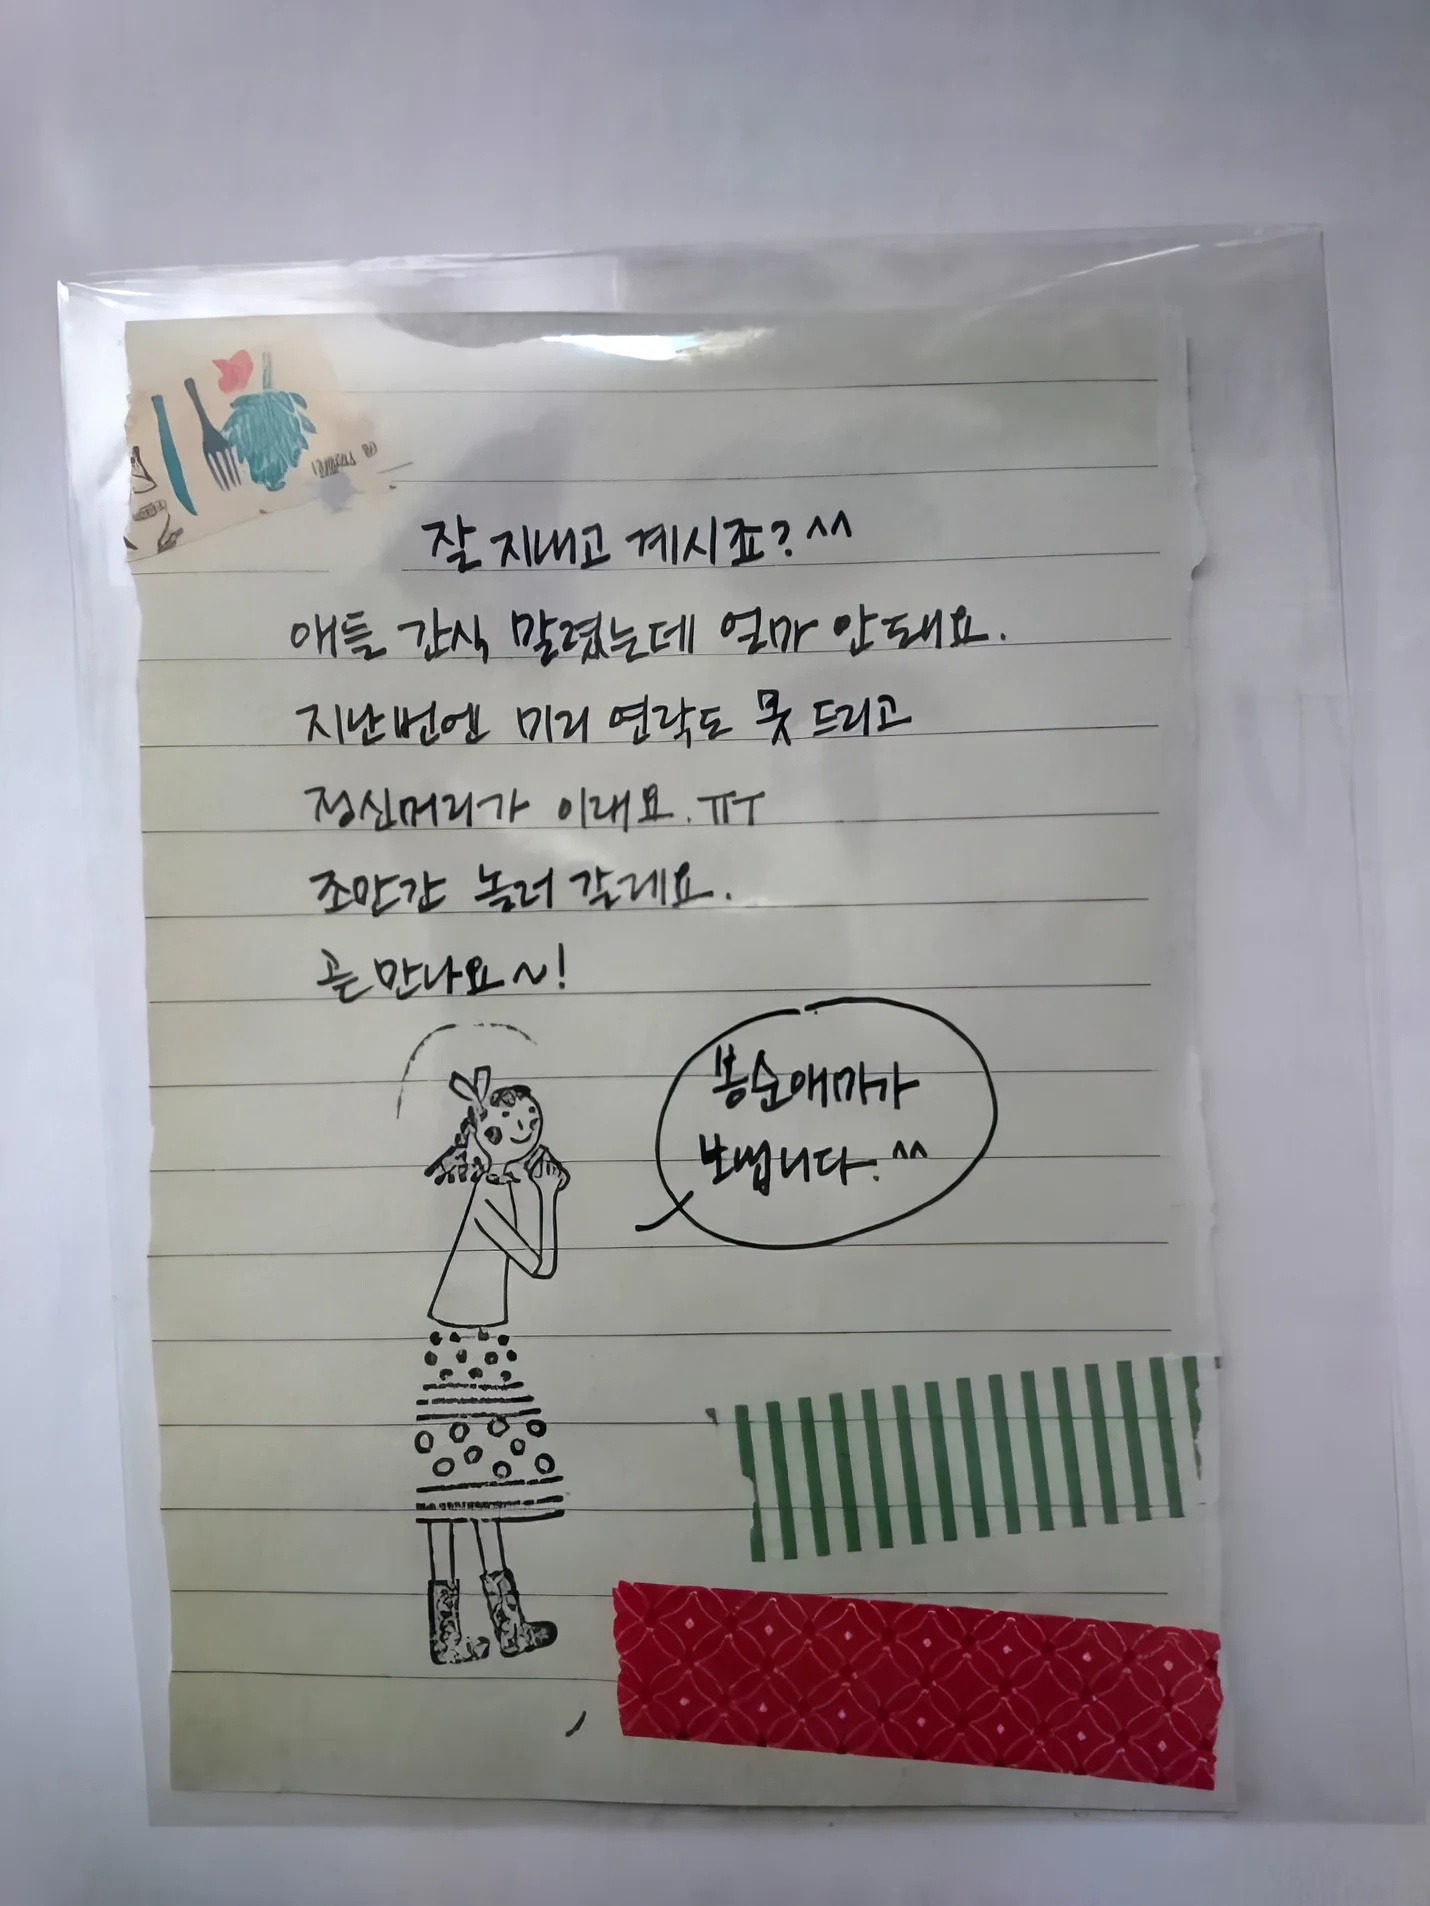 잘 지내고 계시죠? ^^
애들 간식 말렸는데 얼마 안돼요.
지난번엔 미리 연락도 못 드리고
정신머리가 이래요. ㅠㅜ
조만간 놀러 갈게요.
곧 만나요~!
봉순애미가
보냅니다. ^^